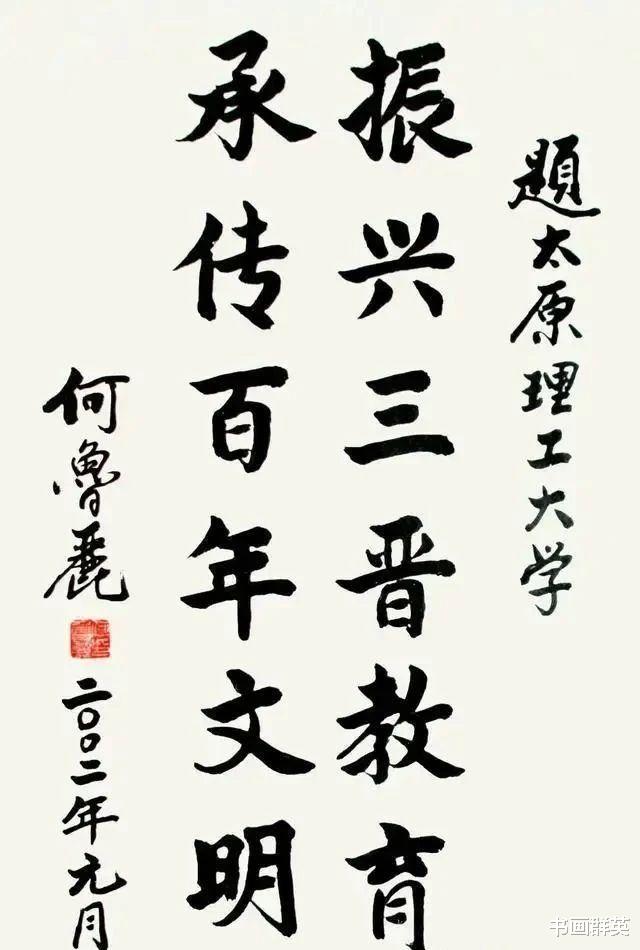 題太原理工大学
振兴三晋教育
承传百年文明
何魯麗
二〇〇二年元月
书画群英